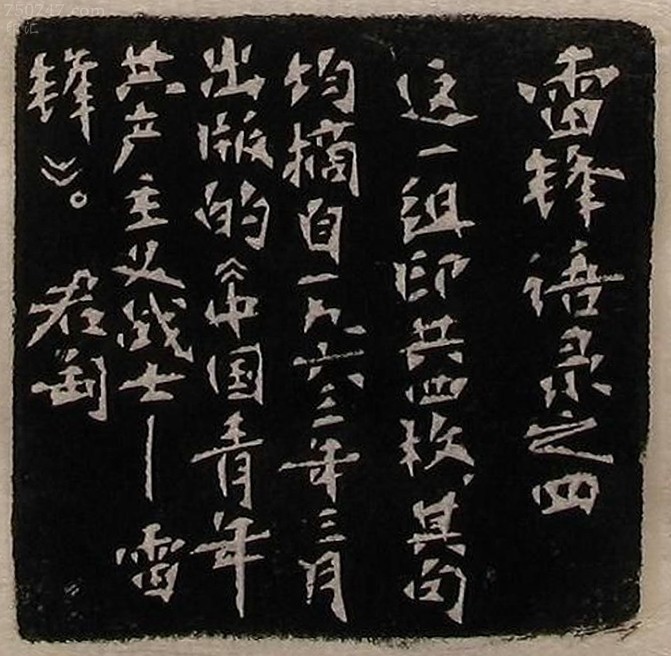 雷锋语录之四
这一组印共四枚,其句
均摘自一九六三年三月
出版的《中国青年
共产主义战士—雷
锋》。君匋
750747.com